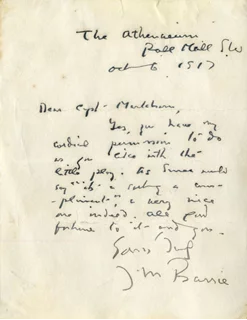 The Athenaeum
Pall Mall S.W
Oct 6 1917
Dear Capt. Markham,
Yes, you have my
cordial permission to do
as you like with the
little play. As
say "it's a com-
pliment", a very nice
one indeed. All good
fortune to it and you.
Yours truly
J.M Barrie